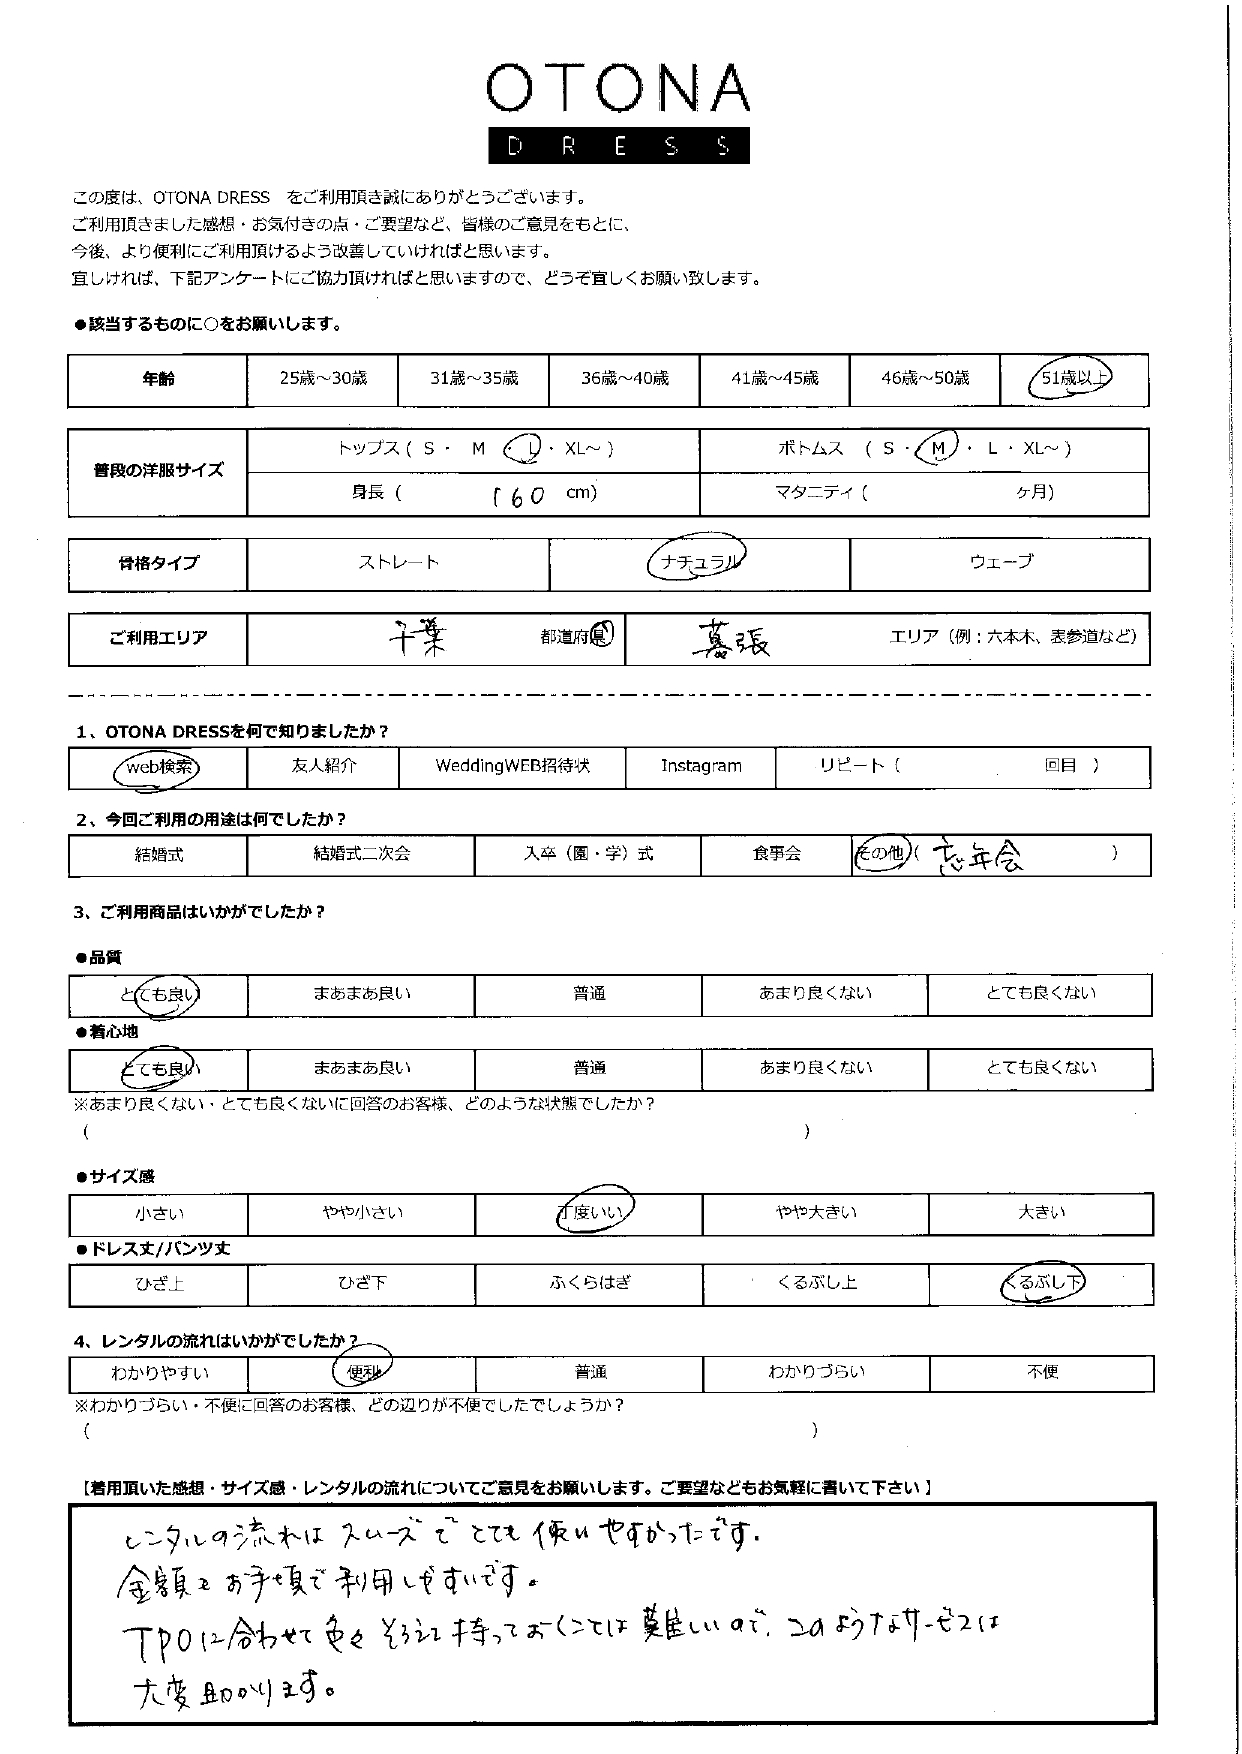 OTONA
DRESS
この度は、OTONA DRESS をご利用頂き誠にありがとうございます。
ご利用頂きました感想・お気付きの点・ご要望など、皆様のご意見をもとに、
今後、より便利にご利用頂けるよう改善していければと思います。
宜しければ、下記アンケートにご協力頂ければと思いますので、どうぞ宜しくお願い致します。
●該当するものに○をお願いします。
年齢 25歳～30歳 31歳～35歳 36歳～40歳 41歳～45歳 46歳～50歳 51歳以上
普段の洋服サイズ トップス ( S ・ M ・ L ・ XL～ ) ボトムス ( S ・ M ・ L ・ XL～ )
身長 ( 160 cm) マタニティ ( ヶ月)
骨格タイプ ストレート ナチュラル ウェーブ
ご利用エリア 千葉 都道府県 幕張 エリア（例：六本木、表参道など）
1、OTONA DRESSを何で知りましたか？
web検索 友人紹介 WeddingWEB招待状 Instagram リピート ( 回目 )
2、今回ご利用の用途は何でしたか？
結婚式 結婚式二次会 入卒（園・学）式 食事会 その他 ( 忘年会 )
3、ご利用商品はいかがでしたか？
●品質
とても良い まあまあ良い 普通 あまり良くない とても良くない
●着心地
とても良い まあまあ良い 普通 あまり良くない とても良くない
※あまり良くない・とても良くないに回答のお客様、どのような状態でしたか？
( )
●サイズ感
小さい やや小さい 丁度いい やや大きい 大きい
●ドレス丈/パンツ丈
ひざ上 ひざ下 ふくらはぎ くるぶし上 くるぶし下
4、レンタルの流れはいかがでしたか？
わかりやすい 便利 普通 わかりづらい 不便
※わかりづらい・不便に回答のお客様、どの辺りが不便でしたでしょうか？
( )
【着用頂いた感想・サイズ感・レンタルの流れについてご意見をお願いします。ご要望などもお気軽に書いて下さい】
レンタルの流れはスムーズでとても使いやすかったです。
金額もお手頃で利用しやすいです。
TPOに合わせて色々そろえて持っておくことは難しいので、このようなサービスは
大変助かります。